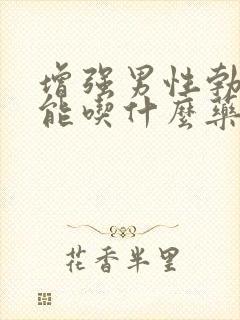 增强男性勃
能喫什麼藥
花香半里